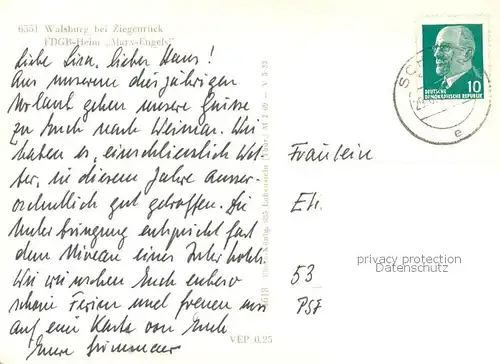 6551 Walsburg bei Ziegenrück
FDGB-Heim „Marx-Engels"
Liebe Lisa, lieber Hans!
Aus unserem diesjährigen
Urlaub gehen unsere Grüsse
zu Euch nach Weimar. Wir
haben es, einschliesslich Wet-
ter, in diesem Jahre ausser-
ordentlich gut getroffen. Die
Unterbringung entspricht fast
dem Niveau eines Interhotels.
Wir wünschen Euch ebenso
schöne Ferien und freuen uns
auf eine Karte von Euch
Eure
VEP 0.25
DEUTSCHE
DEMOKRATISCHE REPUBLIK
10
SC
e
Fräulein
53
PSF
privacy protection
Datenschutz